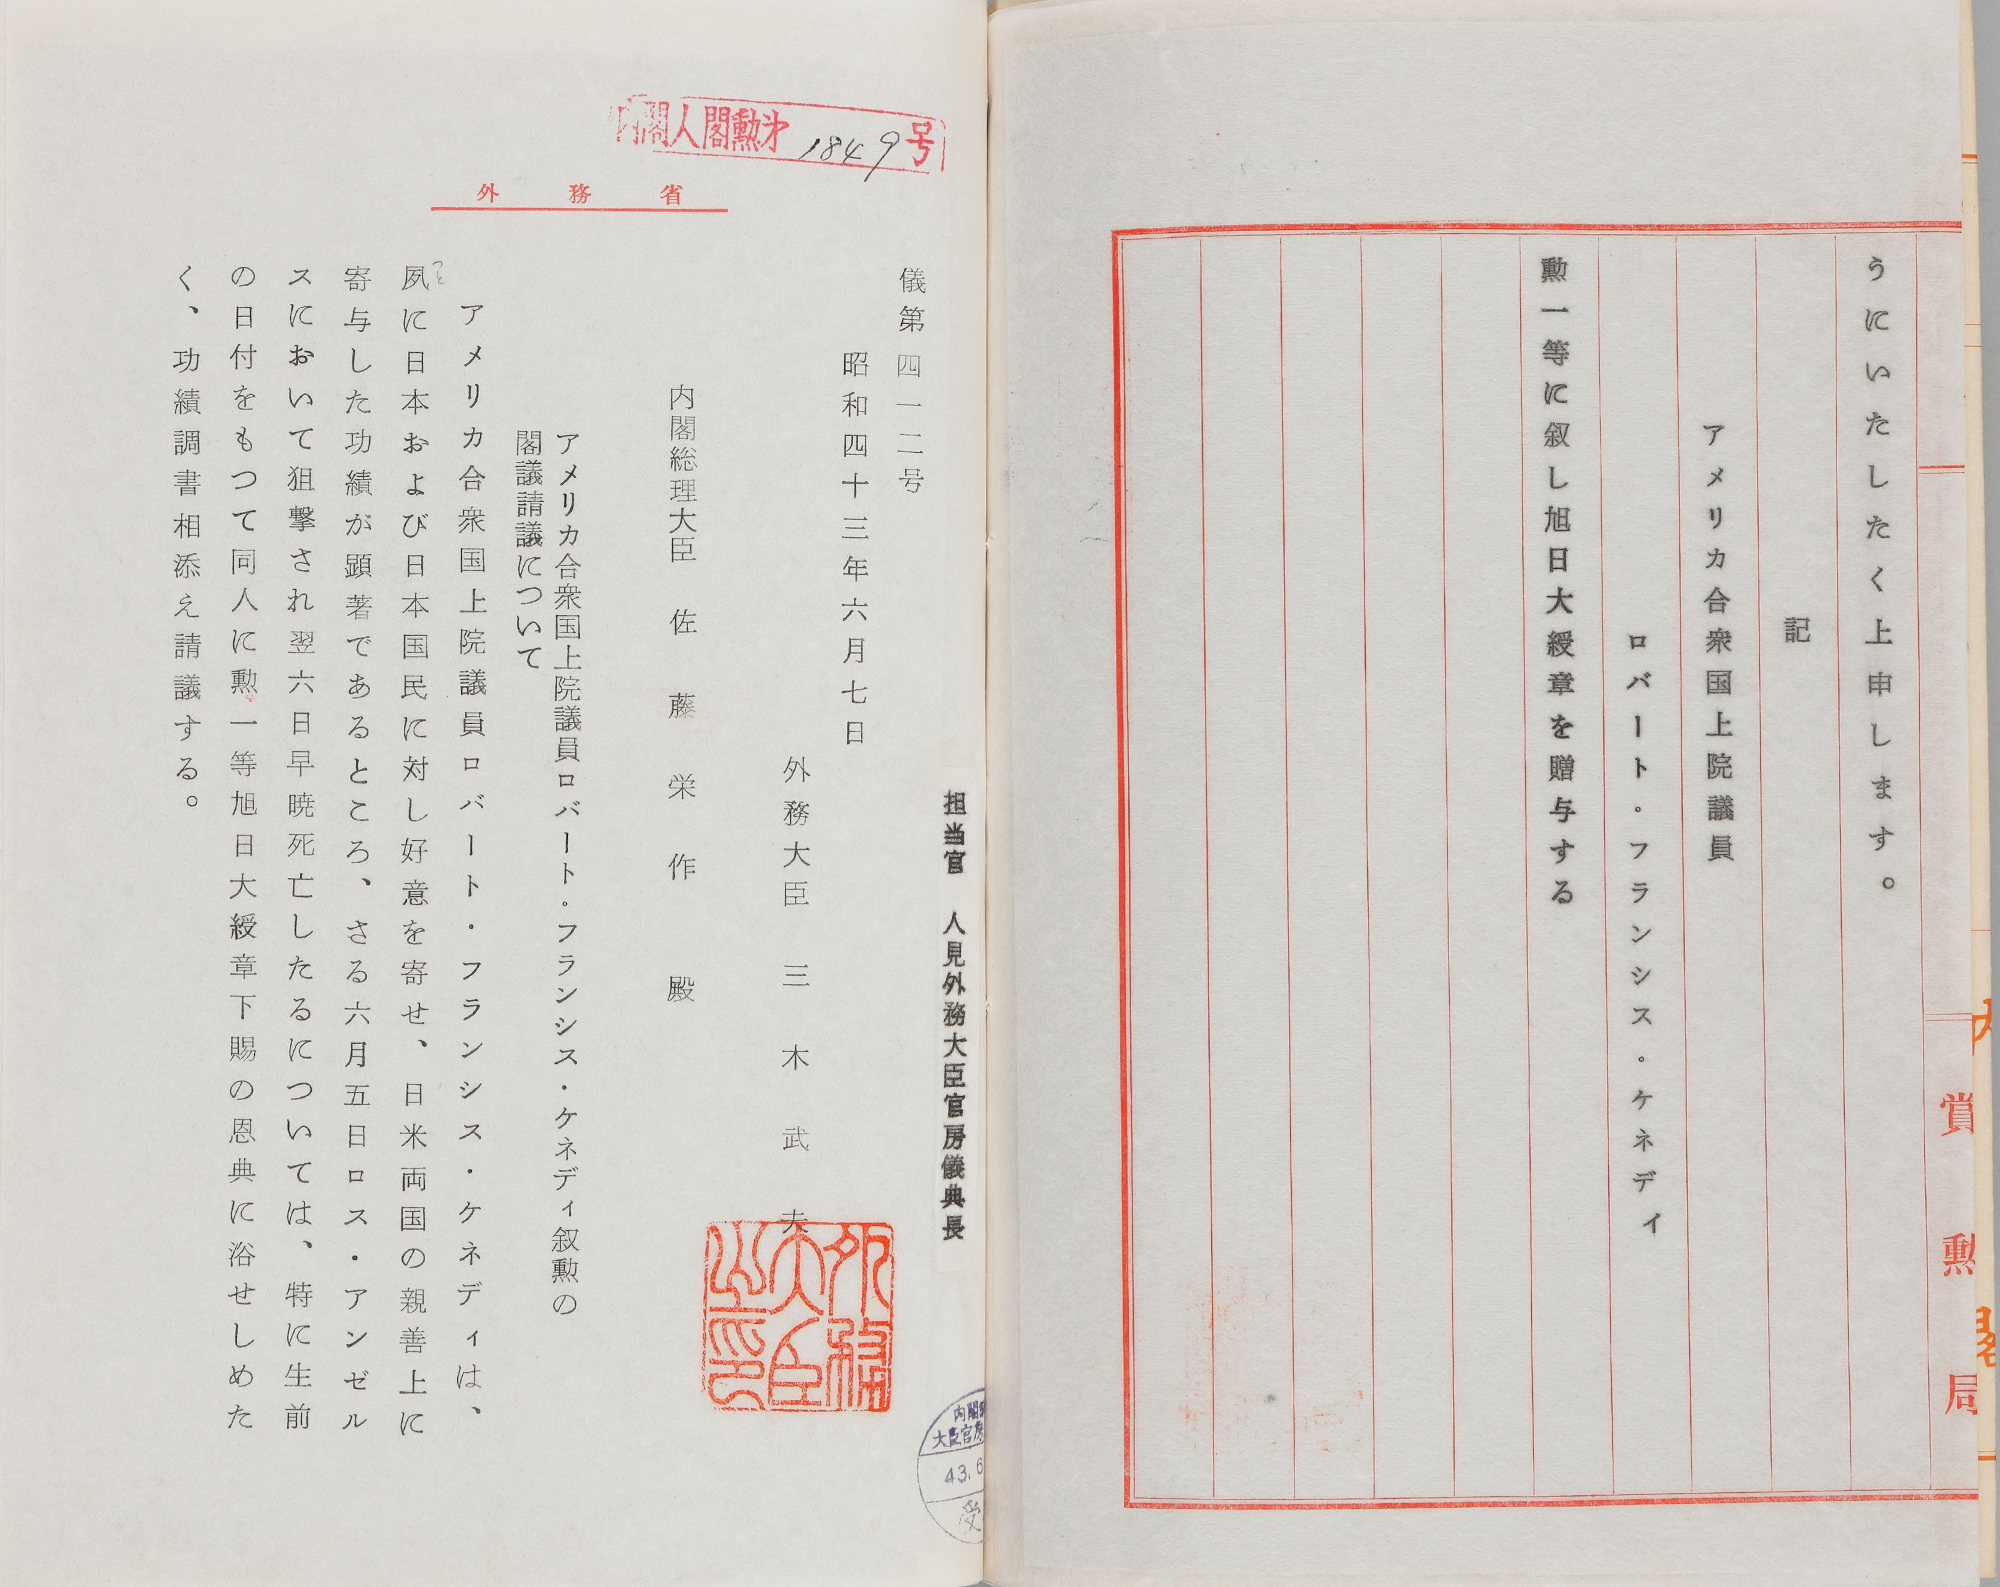 うにいたしたく上申します。
記
アメリカ合衆国上院議員
ロバート・フランシス・ケネディ
勲一等に叙し旭日大綬章を贈与する
賞勲局
内閣
内閣人閣勲第1849号
外務省
担当官 人見外務大臣官房儀典長
儀第四一二号
昭和四十三年六月七日
外務大臣 三木武夫
外務大臣之印
内閣総理大臣 佐藤栄作殿
アメリカ合衆国上院議員ロバート・フランシス・ケネディ叙勲の
閣議請議について
アメリカ合衆国上院議員ロバート・フランシス・ケネディは、
夙に日本および日本国民に対し好意を寄せ、日米両国の親善上に
つと
寄与した功績が顕著であるところ、さる六月五日ロス・アンゼル
スにおいて狙撃され翌六日早暁死亡したるについては、特に生前
の日付をもつて同人に勲一等旭日大綬章下賜の恩典に浴せしめた
く、功績調書相添え請議する。
内閣
大臣官房
43.6
受